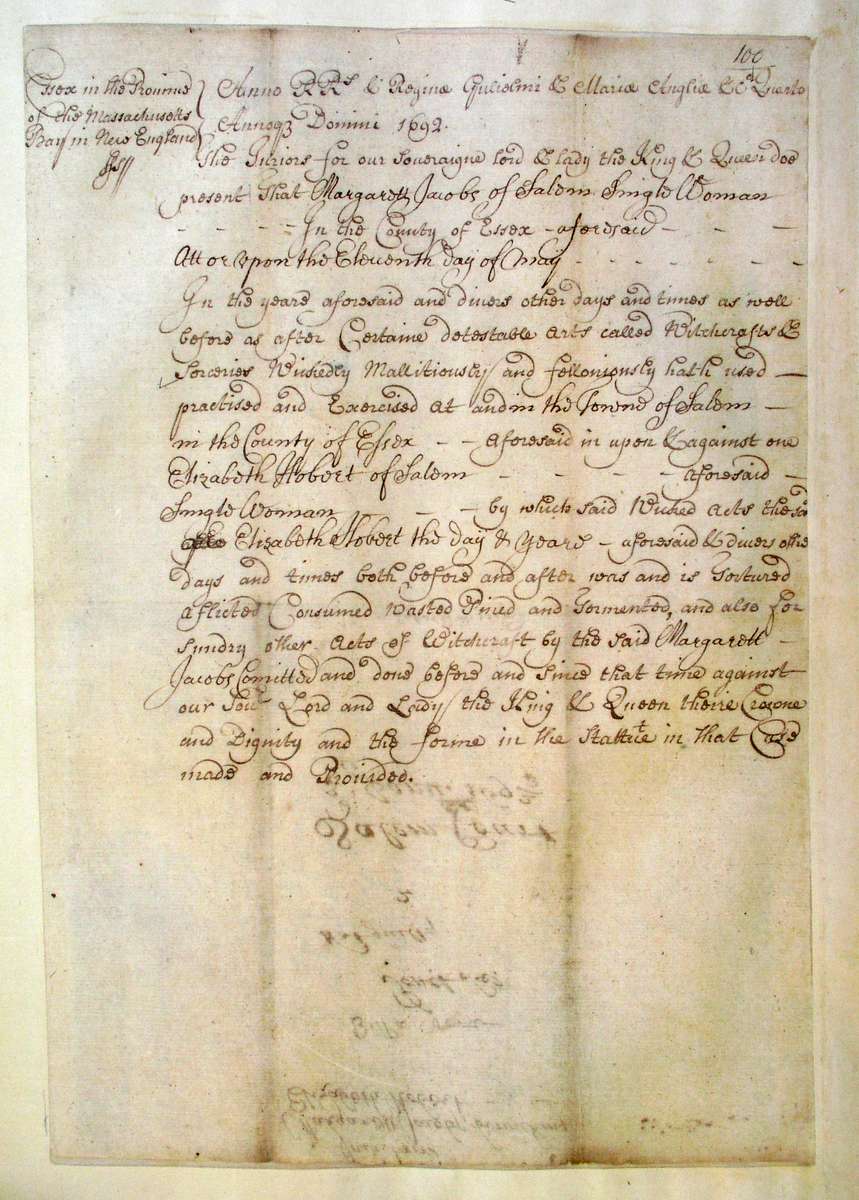 100
Essex in the Prouince
of the Massachusetts
Bay in New England
ss
Anno RRs & Reginæ Gulielmi & Mariæ Angliæ &c Quarto
Annoqȝ Domini 1692.
The Juriors for our Soveraigne lord & lady the King & Queen doe
present That Margarett Jacobs of Salem Single Woman
- - - - In the County of Essex - aforesaid - - -
Att or vpon the Eleuenth day of May - - - - - -
In the yeare aforesaid and divers other days and times as well
before as after Certaine detestable arts called Witchcrafts &
Sorceries Wickedly Mallitiously and felloniously hath used -
practised and Exercised At and in the Towne of Salem -
in the County of Essex - - aforesaid in upon & against one
Elizabeth Hobert of Salem - - - - - aforesaid -
Single Woman - - - by which said Wicked Acts the sd
Elizabeth Hobert the day & Yeare - aforesaid & divers othe
days and times both before and after was and is Tortured
aflicted Consumed Wasted Pined and Tormented, and also for
sundry other Acts of Witchcraft by the said Margarett -
Jacobs Comitted and done before and since that time against
our Sour Lord and Lady the King & Queen theire Crowne
and Dignity and the forme in the Stattute in that Case
made and Prouided.
Salem Court
Billa vera
Elizabeth Hobert
Margarett Jacobs